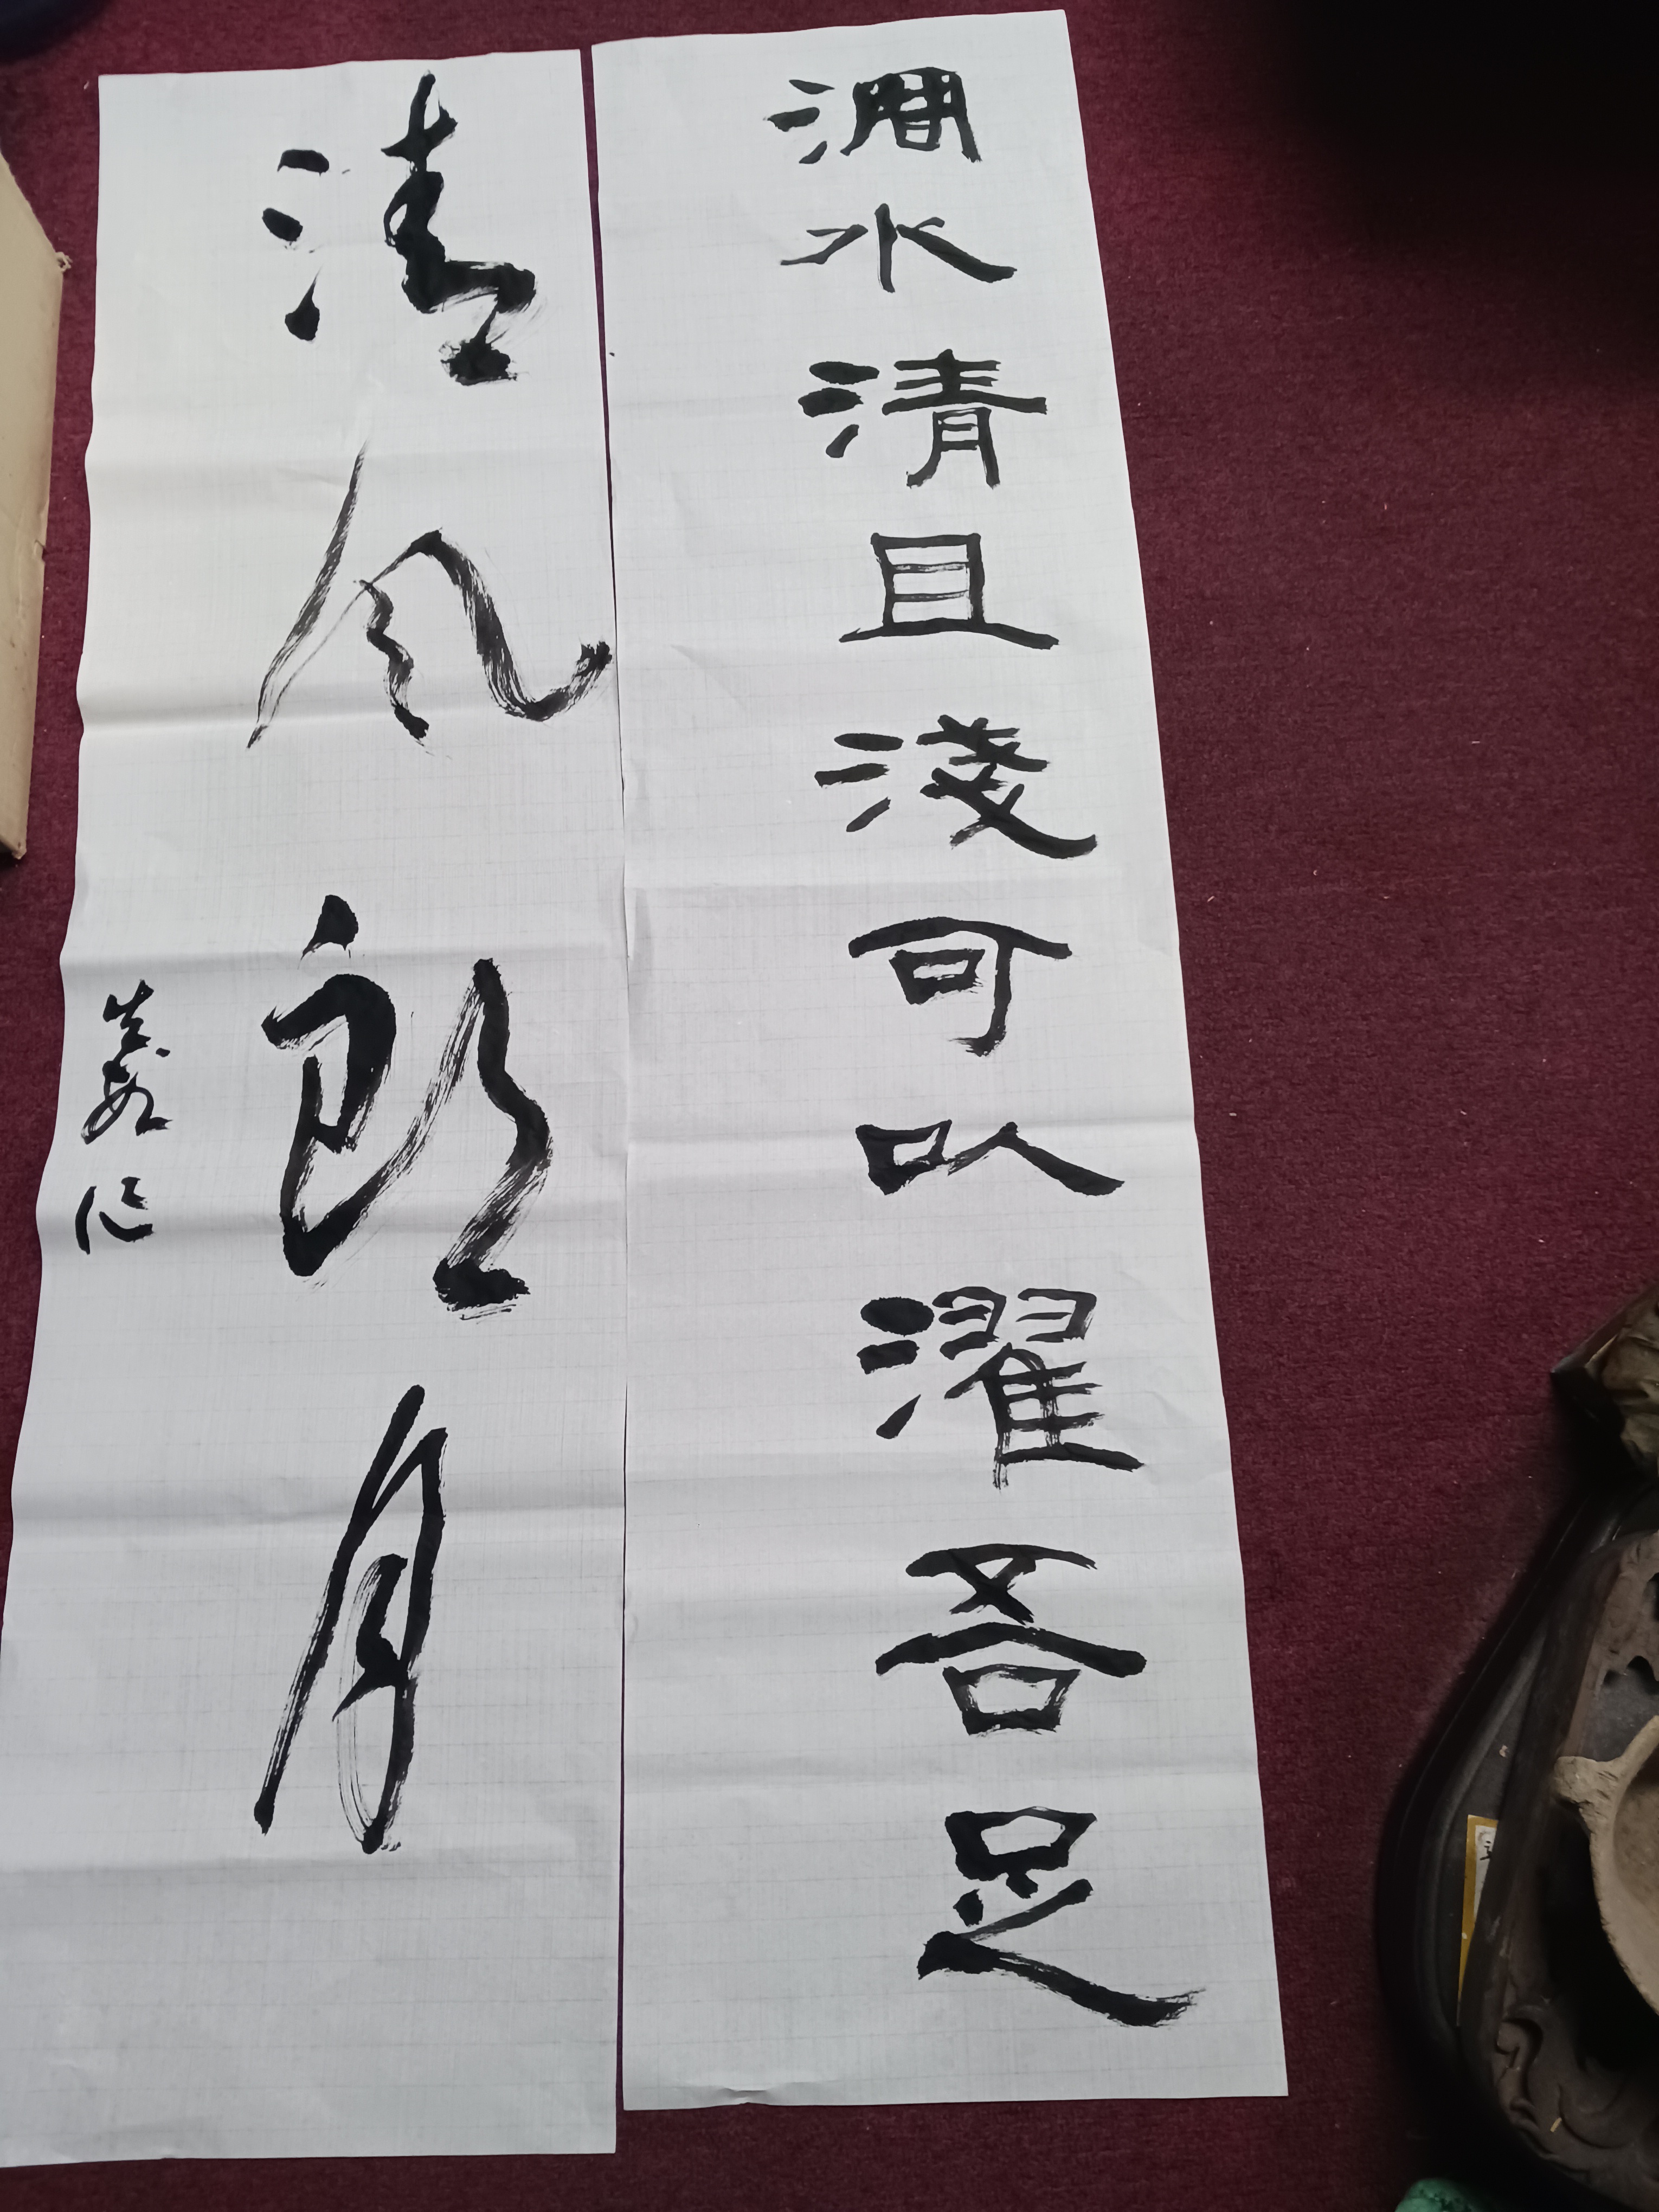 澗水清且淺可以濯吾足
清风朗月
作